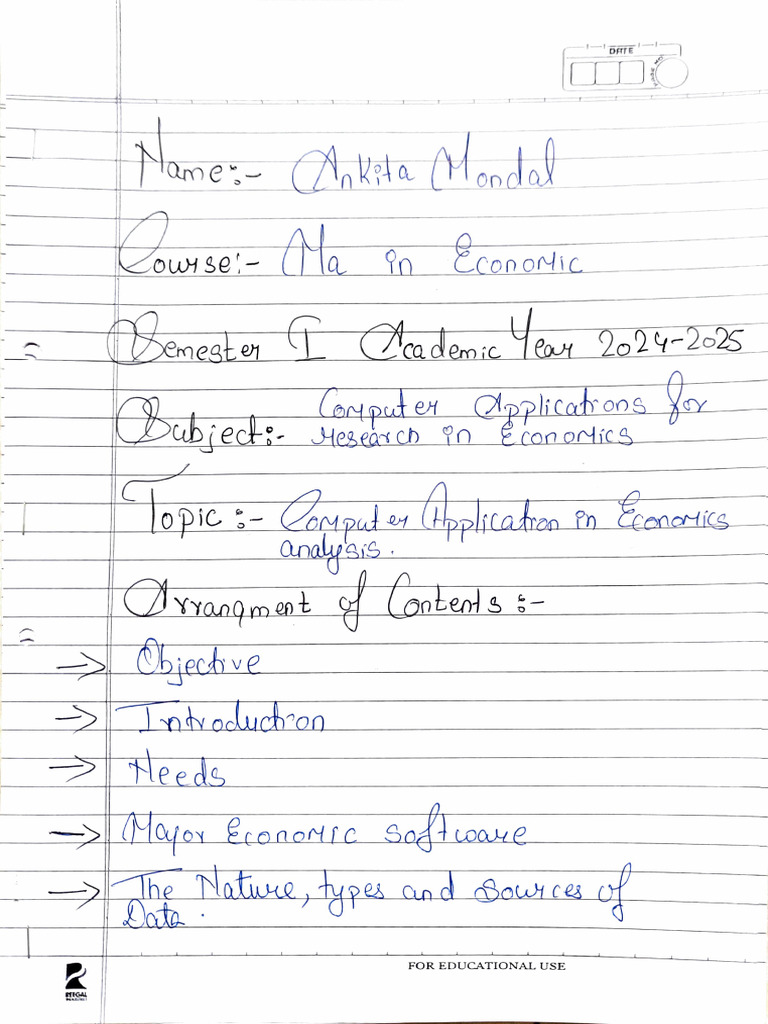 DATE
Name:- Ankita Mondal
Course:- Ma in Economic
Semester I Academic Year 2024-2025
Subject:- Computer Applications for
research in Economics
Topic:- Computer Application in Economics
analysis.
Arrangment of Contents:-
→ Objective
→ Introduction
→ Needs
→ Major Economic software
→ The Nature, types and Sources of
Data.
FOR EDUCATIONAL USE